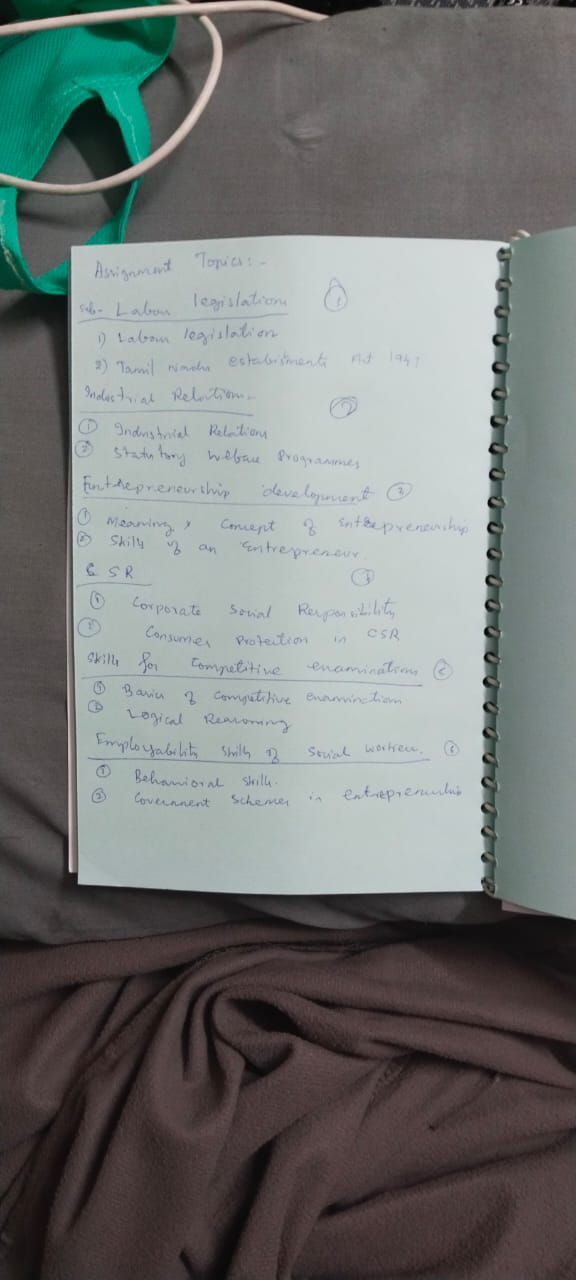 Assignment Topics:-
Sub- Labour legislation ①
1) Labour legislation
2) Tamil Nadu Act
Industrial Relation- ②
① Industrial Relations
② Statutory Welfare Programmes
Entrepreneurship development ③
① Meaning, Concept of Entrepreneurship
② Skills of an Entrepreneur.
CSR
① Corporate Social Responsibility
② Consumer Protection in CSR
Skills for Competitive examinations
① Basics of Competitive examination
② Logical Reasoning
Employability skills of Social workers. ⑥
① Behavioral skills.
② Government Schemes in entrepreneurship